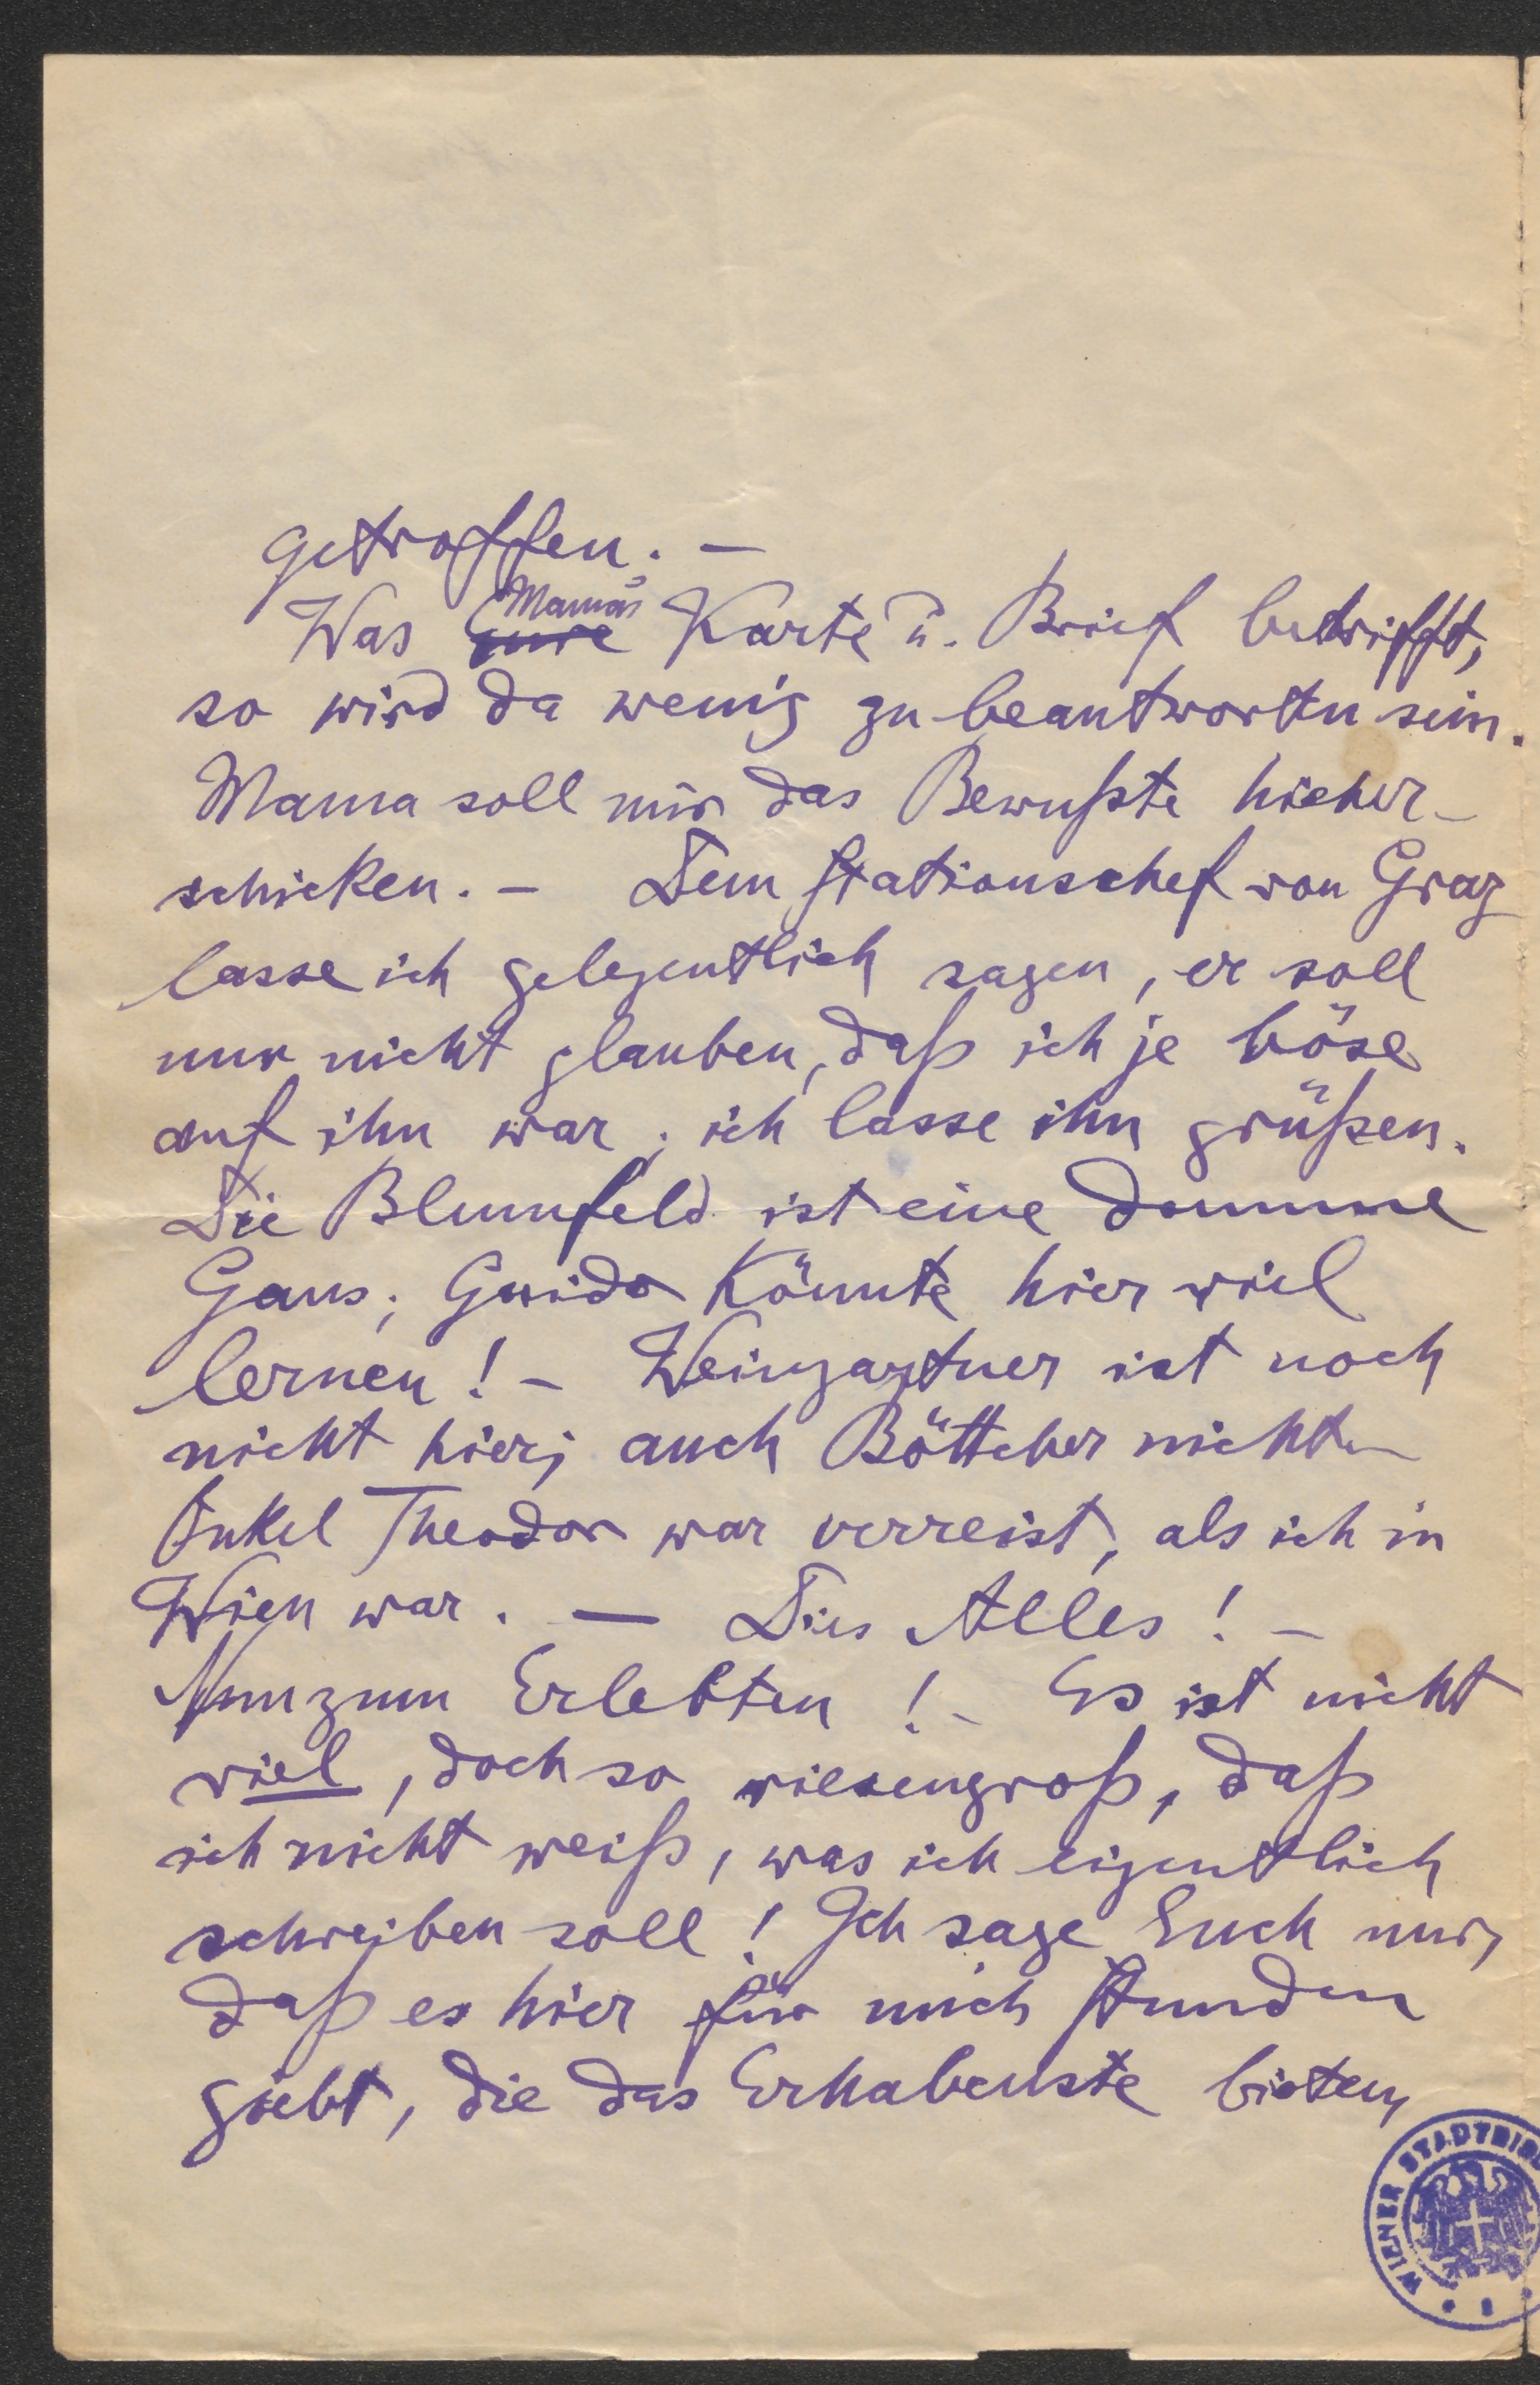 getroffen. –
Was Mamas Karte u. Brief betrifft,
so wird da wenig zu beantworten sein.
Mama soll mir das Bewußte hieher-
schicken. – Dem Stationschef von Graz
lasse ich gelegentlich sagen, er soll
nur nicht glauben, daß ich je böse
auf ihn war; ich lasse ihn grüßen.
Die Blumfeld ist eine dumme
Gans; Guido könnte hier viel
lernen! – Weingartner ist noch
nicht hier; auch Böttcher nicht –
Onkel Theodor war verreist, als ich in
Wien war. — Dies Alles! –
Nun zum Erlebten! – Es ist nicht
viel, doch so riesengroß, daß
ich nicht weiß, was ich eigentlich
schreiben soll! Ich sage Euch nur,
daß es hier für mich Stunden
giebt, die das Erhabenste bieten,
WIENER STADTBIB